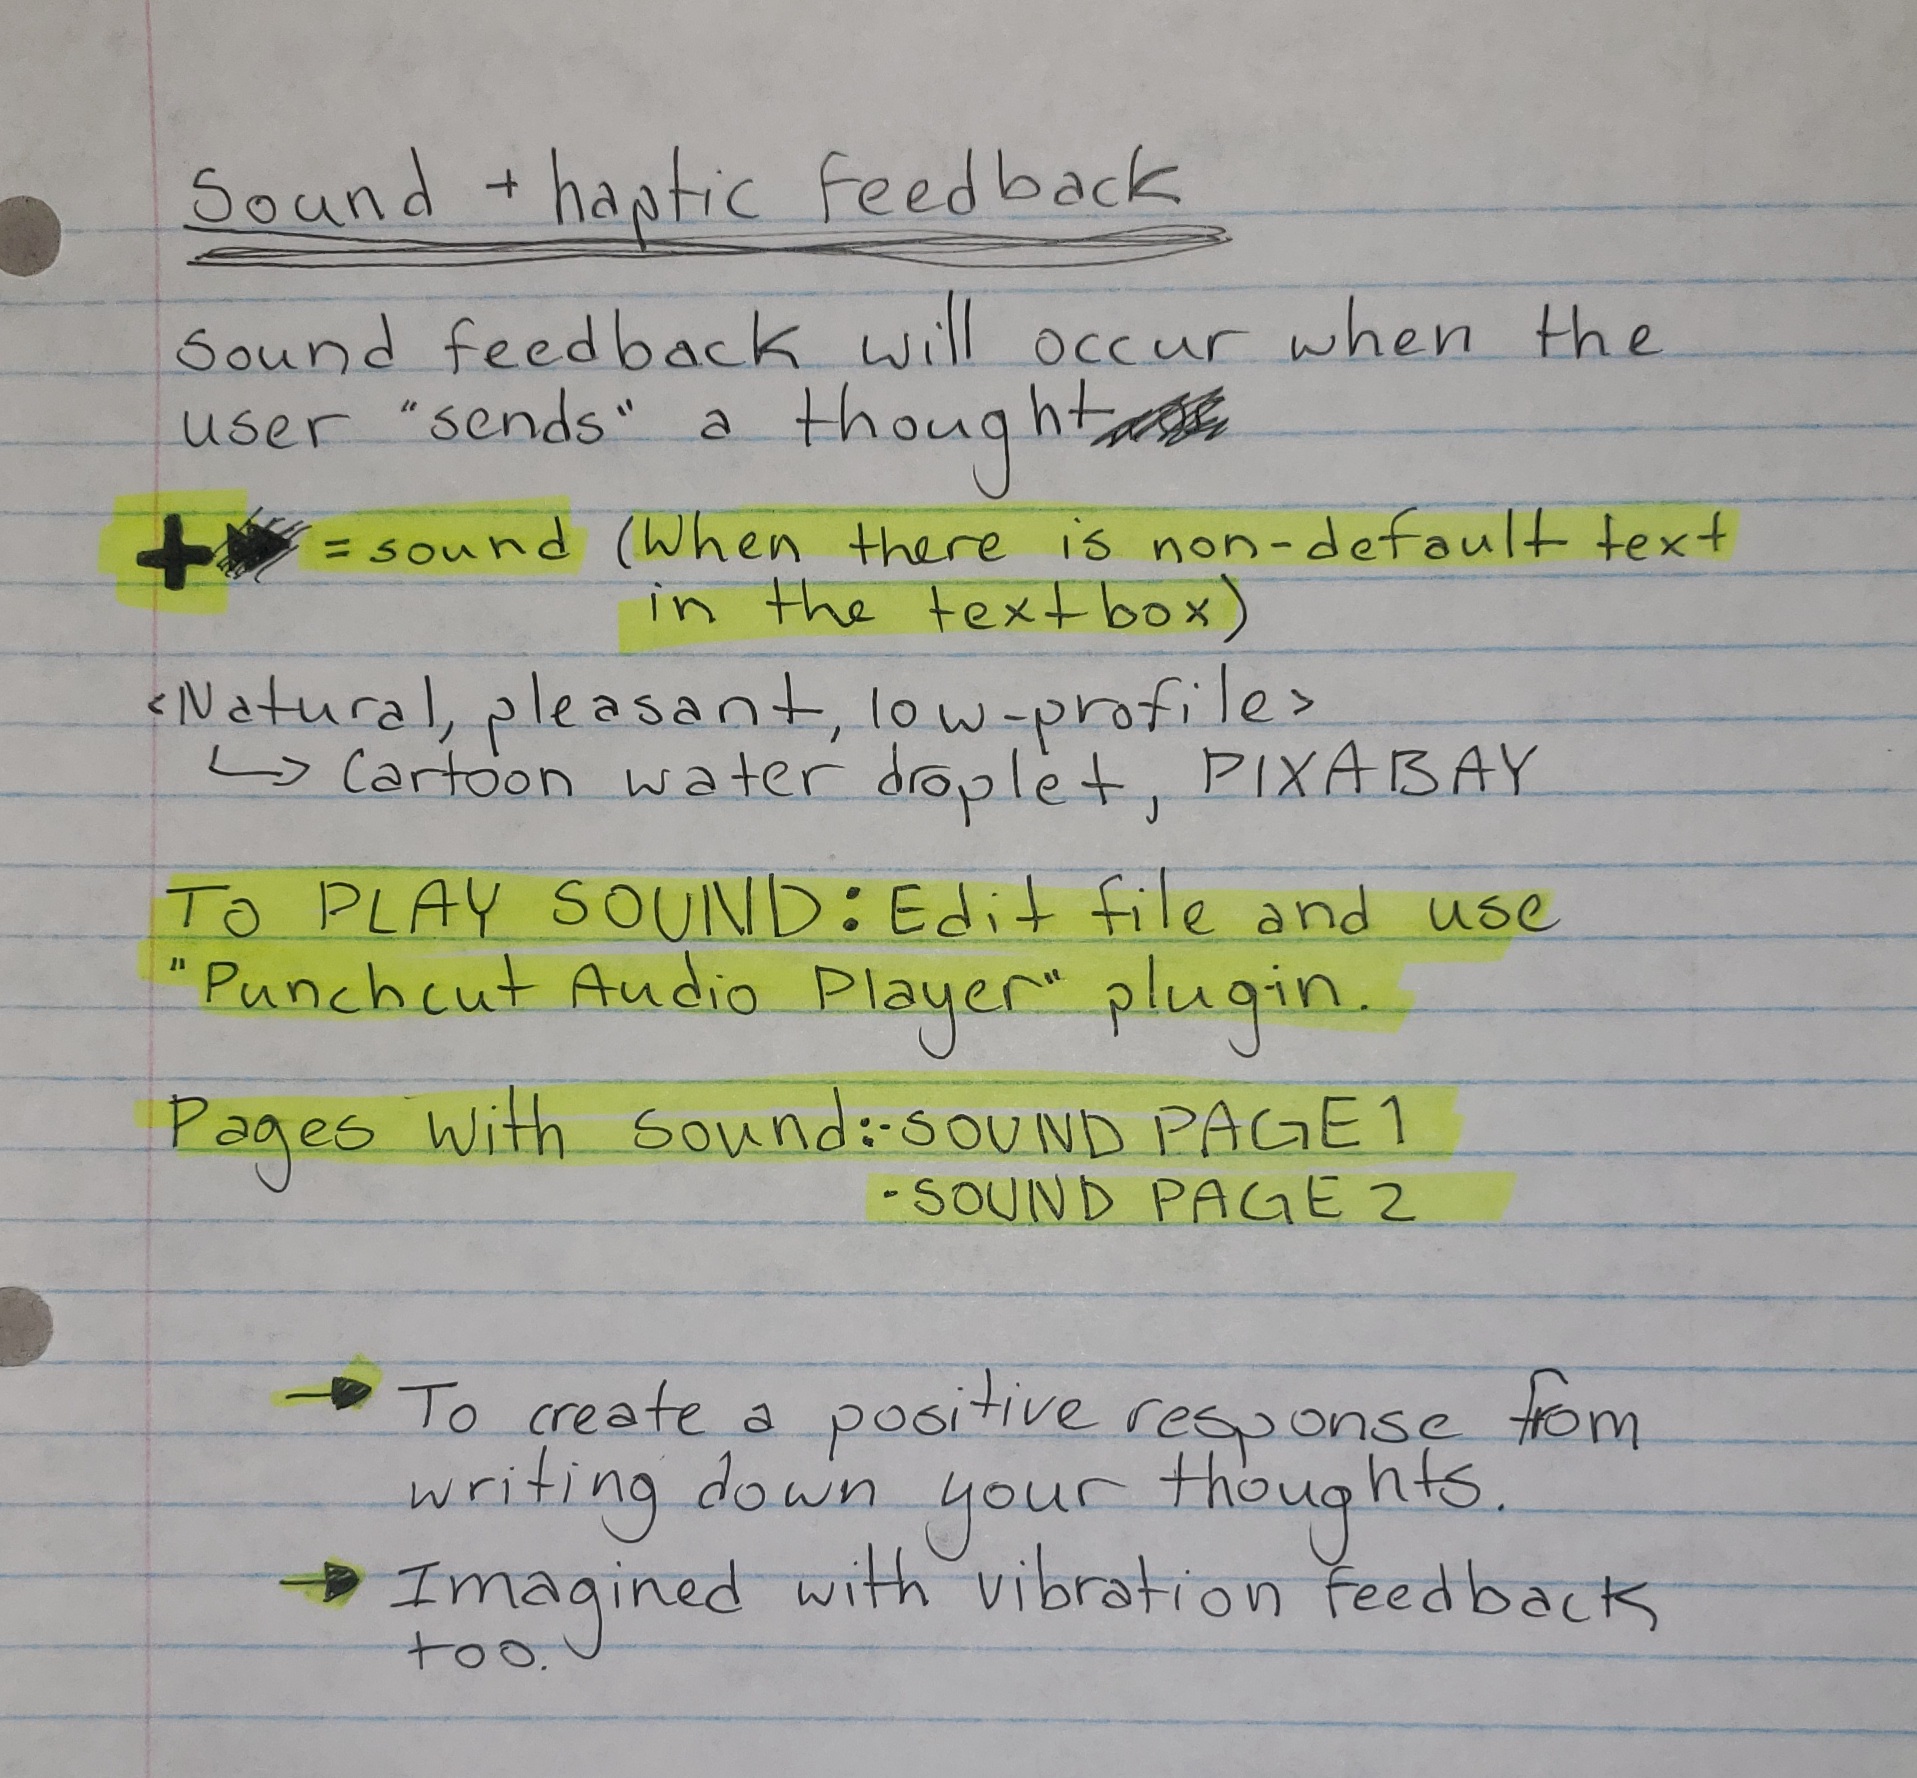 Sound + haptic feedback
Sound feedback will occur when the
user "sends" a thought
+ = sound (When there is non-default text
in the textbox)
<Natural, pleasant, low-profile>
↳ Cartoon water droplet, PIXABAY
TO PLAY SOUND: Edit file and use
"Punchcut Audio Player" plugin.
Pages with sound: -SOUND PAGE 1
-SOUND PAGE 2
→ To create a positive response from
writing down your thoughts.
→ Imagined with vibration feedback
too.